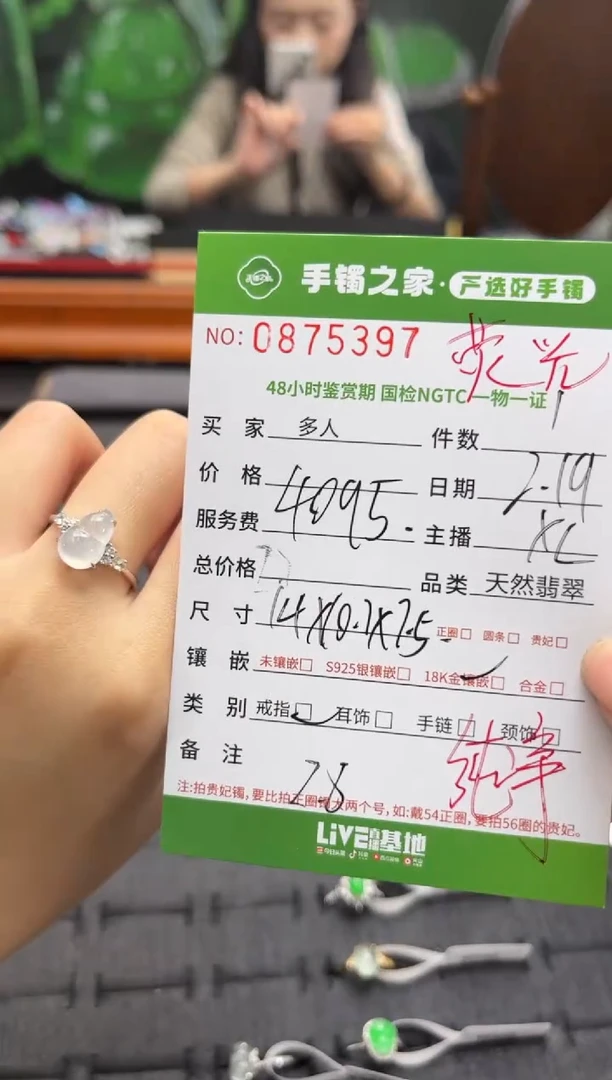 手镯之家·严选好手镯
NO: 0875397
荧光
48小时鉴赏期 国检NGTC 一物一证
买家 多人 件数 1
价格 4095. 日期 2.19
服务费 主播 XL
总价格 品类 天然翡翠
尺寸 14X10.7X7.5 正圈 圆条 贵妃
镶嵌 未镶嵌 S925银镶嵌 18K金镶嵌 合金
类别 戒指 耳饰 手链 颈饰
备注
注:拍贵妃镯,要比拍正圈镯大两个号,如:戴54正圈,要拍56圈的贵妃。
LiVE直播基地